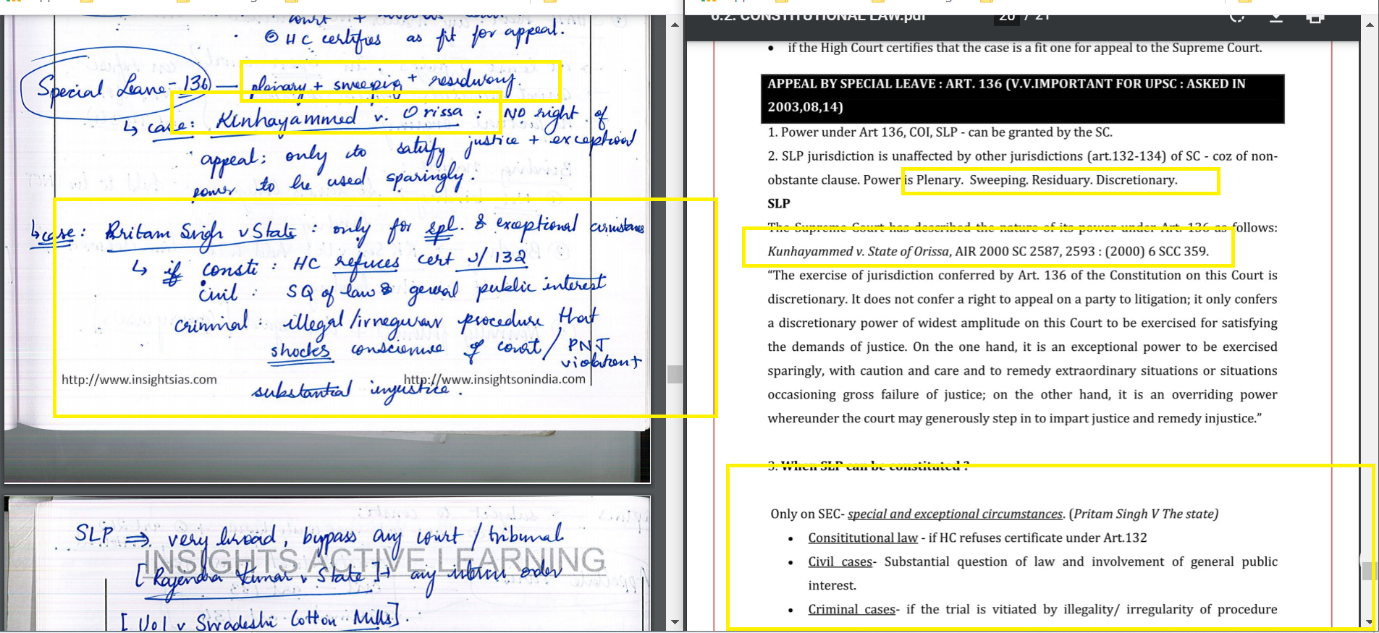 court +
⊙ HC certifies as fit for appeal.
Special Leave - 136 — plenary + sweeping + residuary
↳ case: Kunhayammed v. Orissa : No right of
appeal; only to satisfy justice + exceptional
power to be used sparingly.
↳ case: Pritam Singh v State : only for spl. & exceptional circumstances
↳ if consti : HC refuses cert u/132
civil : SQ of law & general public interest
criminal : illegal/irregular procedure that
shocks conscience of court/ PNJ
violation +
http://www.insightsias.com http://www.insightsonindia.com
substantial injustice.
SLP ⇒ very broad, bypass any court / tribunal
INSIGHTS ACTIVE LEARNING
[Rajendra Kumar v State] + any interim order
[UoI v Swadeshi Cotton Mills].
6.2. CONSTITUTIONAL LAW.pdf 20 / 21
• if the High Court certifies that the case is a fit one for appeal to the Supreme Court.
APPEAL BY SPECIAL LEAVE : ART. 136 (V.V.IMPORTANT FOR UPSC : ASKED IN
2003,08,14)
1. Power under Art 136, COI, SLP - can be granted by the SC.
2. SLP jurisdiction is unaffected by other jurisdictions (art.132-134) of SC - coz of non-
obstante clause. Power is Plenary. Sweeping. Residuary. Discretionary.
SLP
The Supreme Court has described the nature of its power under Art. 136 as follows:
Kunhayammed v. State of Orissa, AIR 2000 SC 2587, 2593 : (2000) 6 SCC 359.
"The exercise of jurisdiction conferred by Art. 136 of the Constitution on this Court is
discretionary. It does not confer a right to appeal on a party to litigation; it only confers
a discretionary power of widest amplitude on this Court to be exercised for satisfying
the demands of justice. On the one hand, it is an exceptional power to be exercised
sparingly, with caution and care and to remedy extraordinary situations or situations
occasioning gross failure of justice; on the other hand, it is an overriding power
whereunder the court may generously step in to impart justice and remedy injustice."
3. When SLP can be constituted ?
Only on SEC- special and exceptional circumstances. (Pritam Singh V The state)
• Consititutional law - if HC refuses certificate under Art.132
• Civil cases- Substantial question of law and involvement of general public
interest.
• Criminal cases- if the trial is vitiated by illegality/ irregularity of procedure